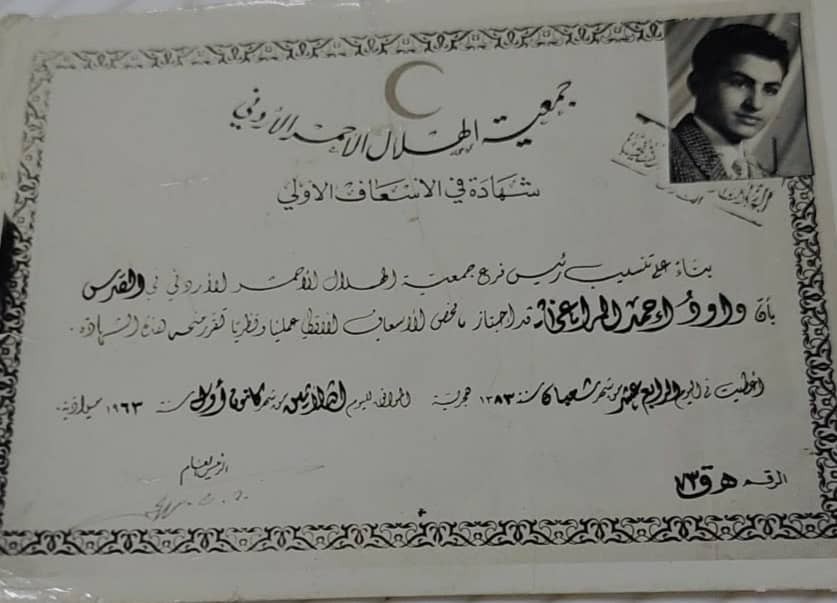 جمعية الهلال الأحمر الأردني
شهادة في الاسعاف الاولي
بناءً على تنسيب رئيس فرع جمعية الهلال الأحمر الأردني في القدس
بأن داود احمد المراغي قد اجتاز فحص الأسعاف الأولي عمليا ونظريا تقرر منحه هذه الشهادة .
أعطيت في اليوم الرابع عشر من شهر شعبان سنة ١٣٨٣ هجرية الموافق لليوم الثلاثين من شهر كانون أول سنة ١٩٦٣ ميلادية .
الرئيس العام
الرقم هـ ق ٧٣